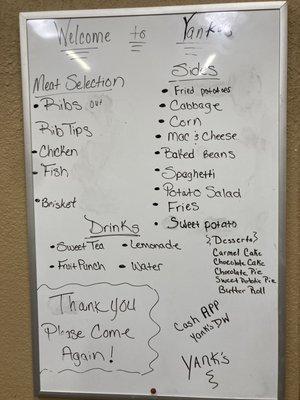 Welcome to Yank's
Meat Selection
• Ribs out
Rib Tips
• Chicken
• Fish
• Brisket
Sides
• Fried potatoes
• Cabbage
• Corn
• Mac & Cheese
• Baked Beans
• Spaghetti
• Potato Salad
• Fries
• Sweet potato
Drinks
• Sweet Tea • Lemonade
• Fruit Punch • Water
{Desserts}
Carmel Cake
Chocolate Cake
Chocolate Pie
Sweet Potato Pie
Butter Roll
Thank you
Please Come
Again!
Cash APP
Yank's DW
YANK's